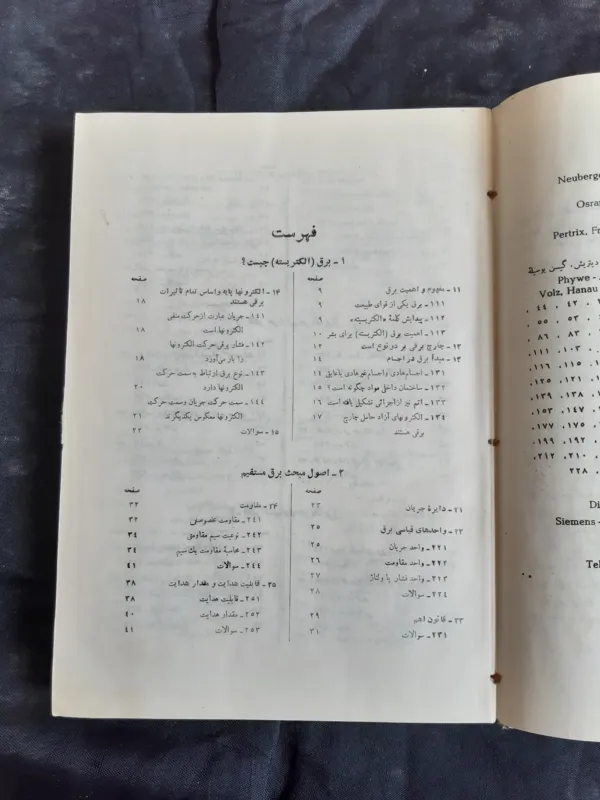 فهرست
۱ - برق (الکتریسته) چیست ؟
صفحه
۱۱ - مفهوم و اهمیت برق ۹
۱۱۱ - برق یکی از قوای طبیعت ۹
۱۱۲ - پیدایش کلمهٔ «الکتریسیته» ۹
۱۱۳ - اهمیت برق (الکتریسته) برای بشر ۱۰
۱۲ - چارج برقی بر دو نوع است ۱۲
۱۳ - مبدأ برق در اجسام ۱۴
۱۳۱ - اجسام هادی و اجسام غیرهادی یا عایق ۱۴
۱۳۲ - ساختمان داخلی مواد چگونه است؟ ۱۵
۱۳۳ - اتم نیز از اجزائی تشکیل یافته است ۱۶
۱۳۴ - الکترونهای آزاد حامل چارج ۱۷
برقی هستند
صفحه
۱۴ - الکترونها پایه و اساس تمام تاثیرات
برقی هستند ۱۸
۱۴۱ - جریان عبارت از حرکت منفی
الکترونها است ۱۸
۱۴۲ - فشار برقی حرکت الکترونها
را بار می‌آورد ۱۸
۱۴۳ - نوع برق ارتباط به سمت حرکت
الکترونها دارد ۲۰
۱۴۴ - سمت حرکت جریان و سمت حرکت
الکترونها معکوس یکدیگرند ۲۱
۱۵ - سوالات ۲۲
۲ - اصول مبحث برق مستقیم
صفحه
۲۱ - دایرهٔ جریان ۲۳
۲۲ - واحدهای قیاسی برق ۲۵
۲۲۱ - واحد جریان ۲۵
۲۲۲ - واحد مقاومت ۲۶
۲۱۳ - واحد فشار یا ولتاژ ۲۷
۲۲۴ - سوالات ۲۸
۲۳ - قانون اهم ۲۹
۲۳۱ - سوالات ۳۱
صفحه
۲۴ - مقاومت ۳۲
۲۴۱ - مقاومت مخصوصی ۳۲
۲۴۲ - نوعیت سیم مقاومتی ۳۴
۲۴۳ - محاسبهٔ مقاومت یک سیم ۳۴
۲۴۴ - سوالات ۴۱
۲۵ - قابلیت هدایت و مقدار هدایت ۳۸
۲۵۱ - قابلیت هدایت ۳۸
۲۵۲ - مقدار هدایت ۴۰
۲۵۳ - سوالات ۴۱
Neuberge
Osra
Pertrix, Fr
دیتریش، گیسن بوسیلهٔ
Phywe -
Volz, Hanau
۴۲، ۴۴
۵۳، ۵۵
۸۳، ۸۶
۱۰۳، ۱۱۱
۱۲۱، ۱۲۵
۱۳۸، ۱۳۹
۱۴۷، ۱۵۳
۱۷۷، ۱۹۹
۲۱۰، ۲۱۲
۲۲۸
Di
Siemens -
Tel